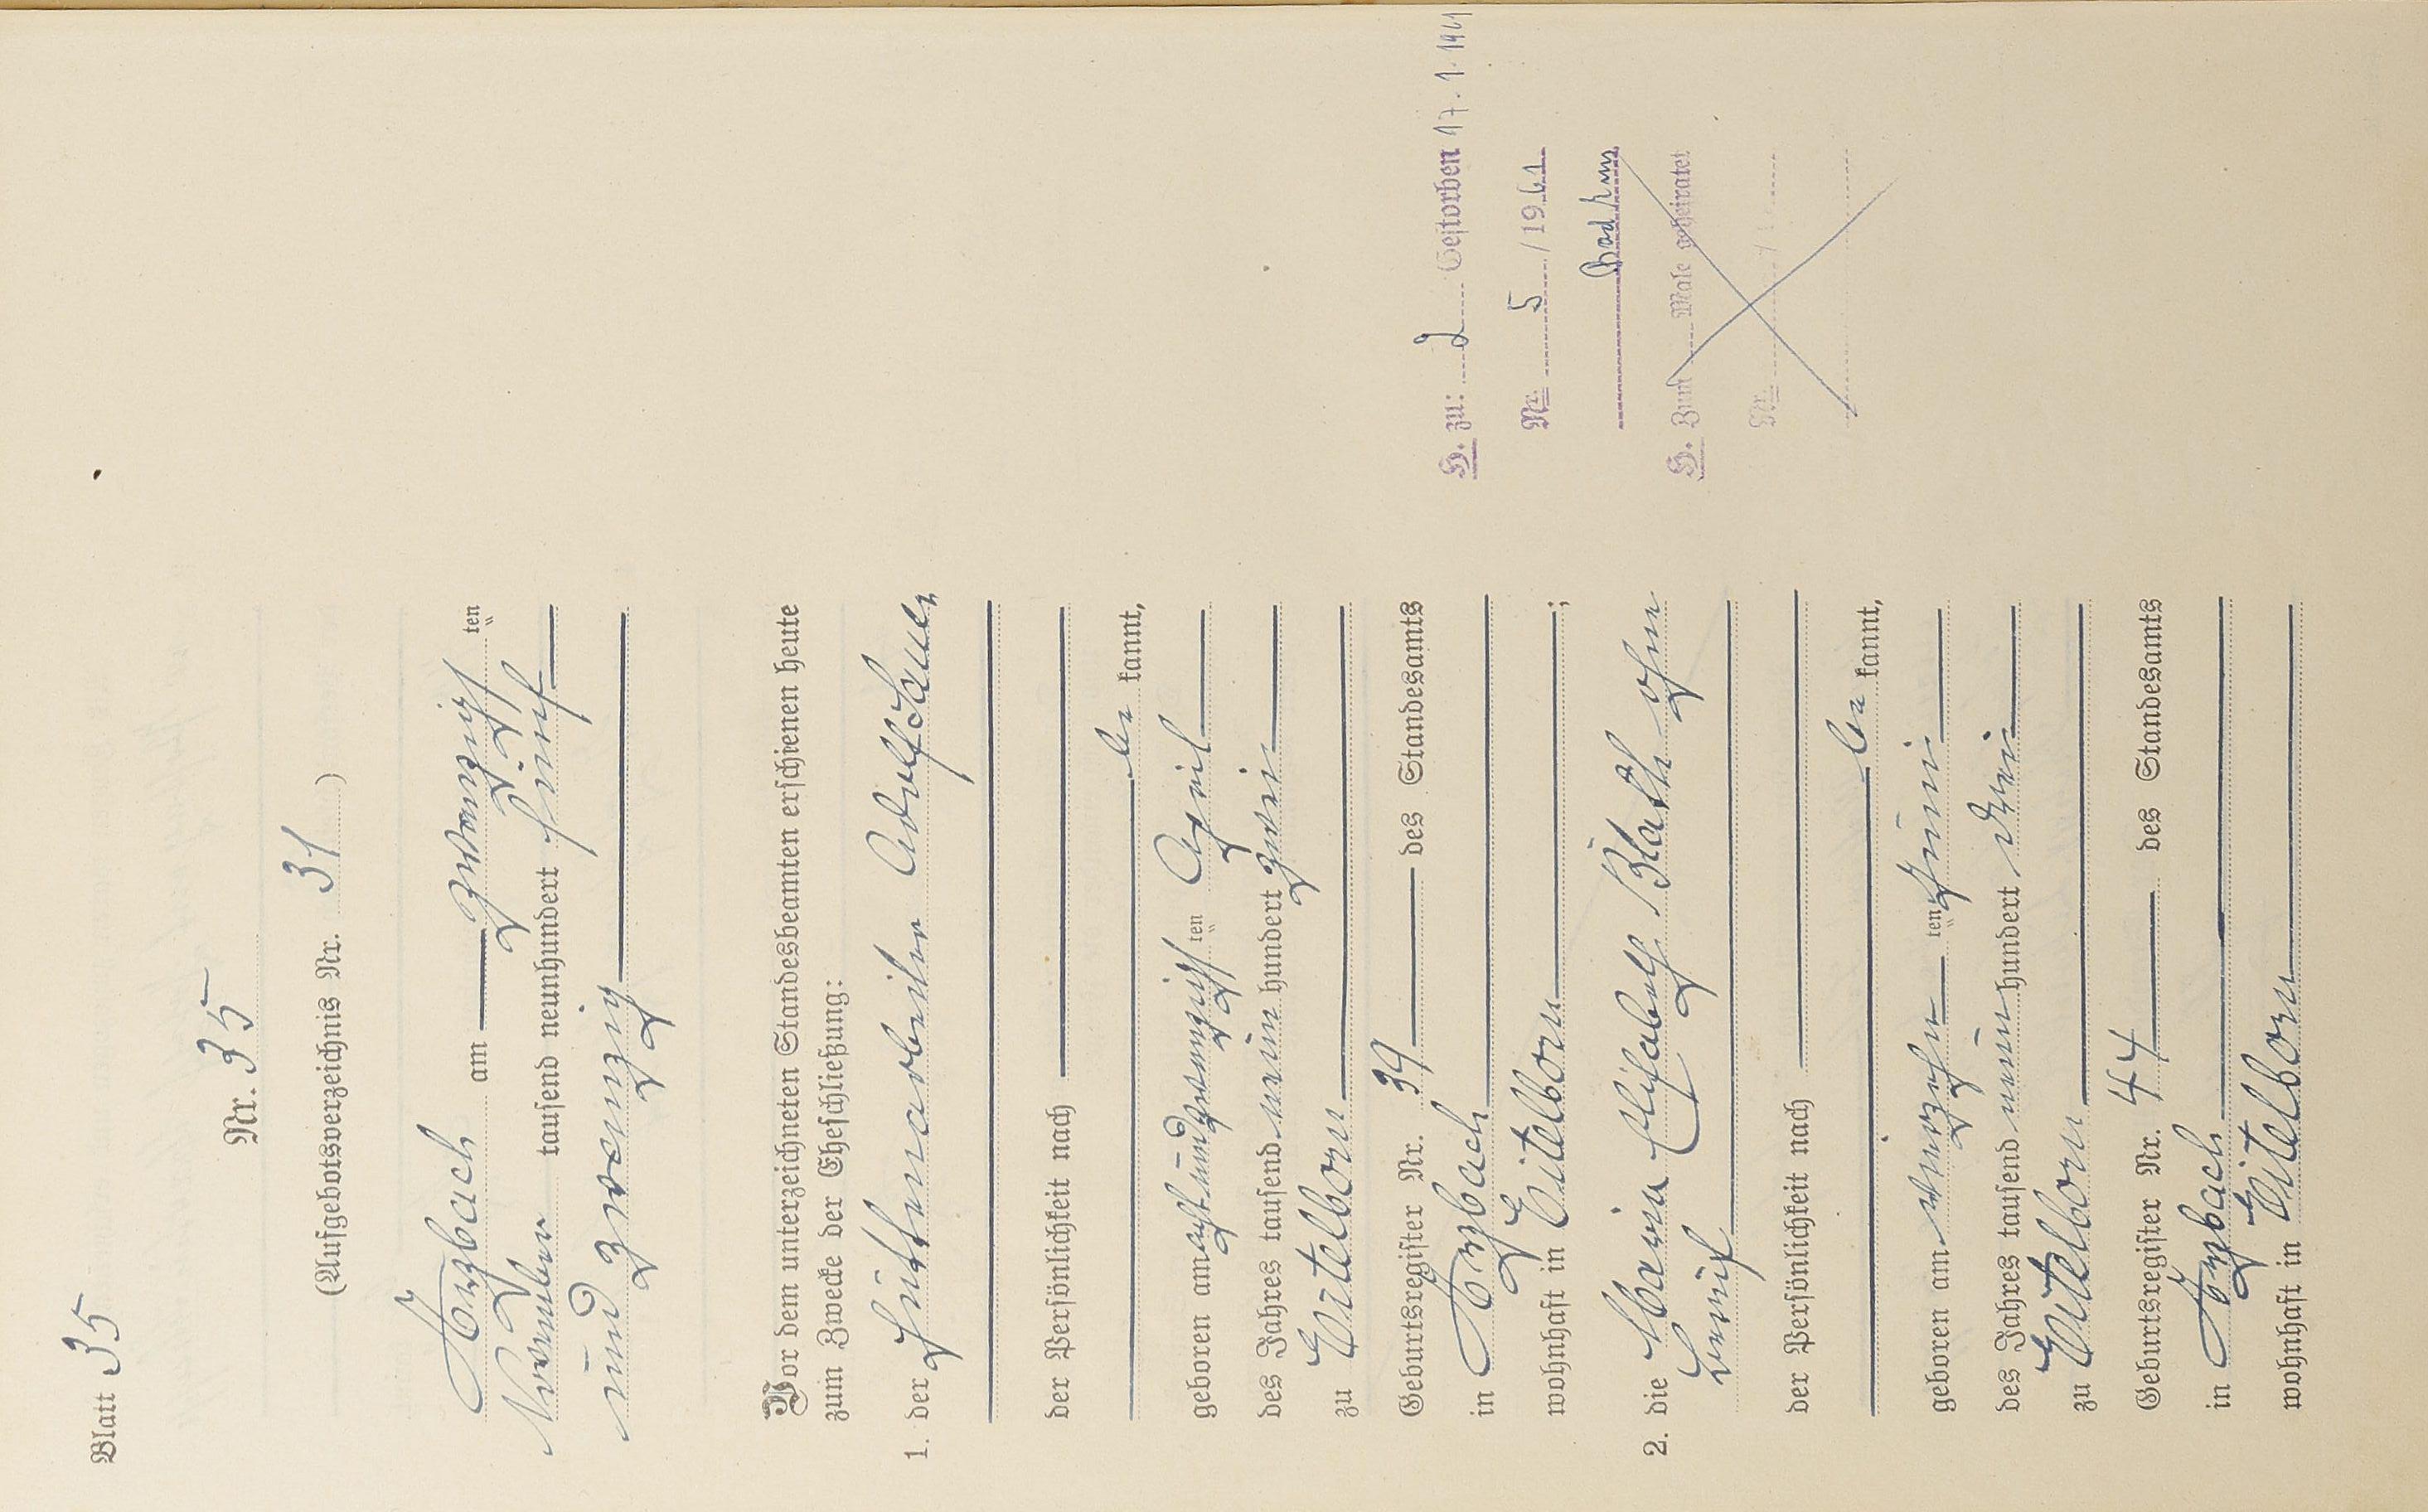 Blatt 35
Nr. 35
(Aufgebotsverzeichnis Nr. 31)
Arzbach am zwanzigsten
November tausend neunhundert fünf
und zwanzig
Vor dem unterzeichneten Standesbeamten erschienen heute
zum Zwecke der Eheschließung:
1. der Hüttenarbeiter Adolf
der Persönlichkeit nach
be kannt,
geboren am achtundzwanzigsten April
des Jahres tausend neun hundert zwei
zu Eitelborn
Geburtsregister Nr. 39 des Standesamts
in Arzbach
wohnhaft in Eitelborn;
2. die Maria Elisabeth Blath ohne
Beruf
der Persönlichkeit nach
be kannt,
geboren am vierzehn ten Juni
des Jahres tausend neun hundert drei
zu Eitelborn
Geburtsregister Nr. 44 des Standesamts
in Arzbach
wohnhaft in Eitelborn
H. zu: 2 Gestorben 17.1.1961
Nr. 5/1961
H. Zum Male geheiratet
Nr. /